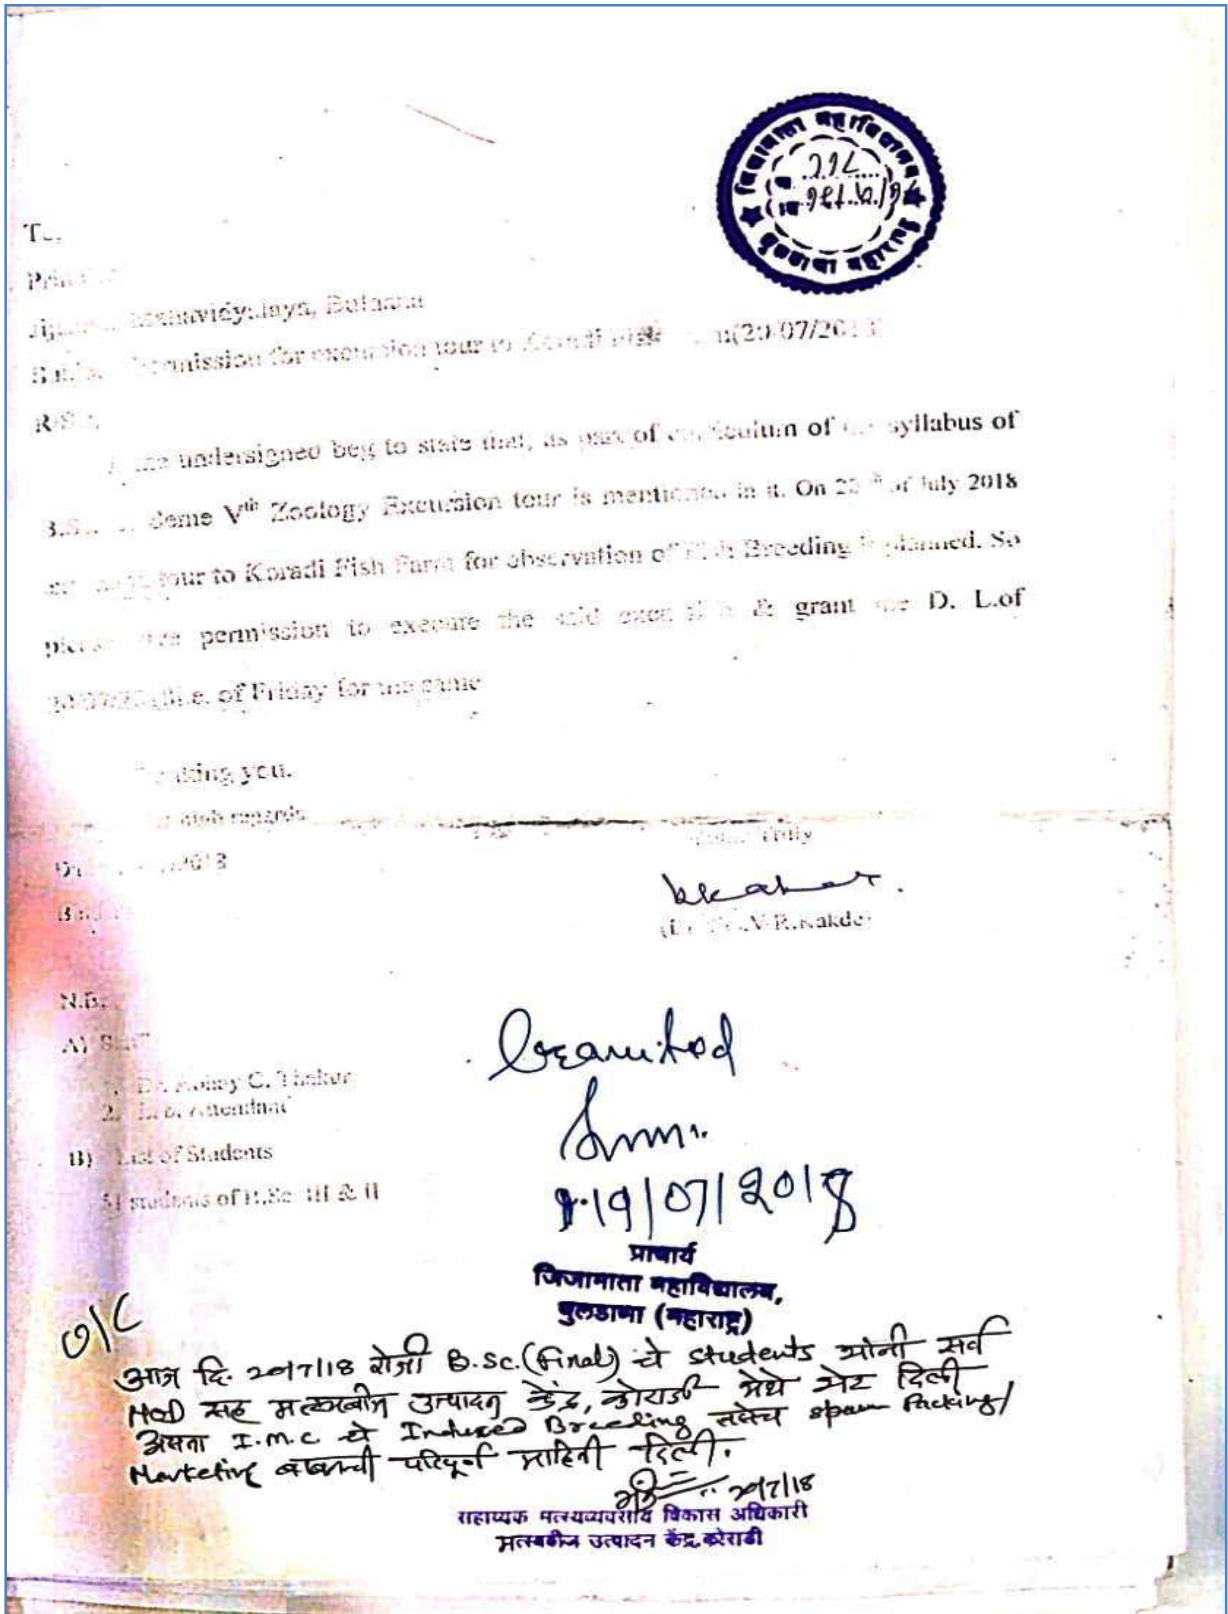 जिजामाता महाविद्यालय
बुलडाणा महाराष्ट्र
To,
Mahavidyalaya, Buldana
Permission for excursion tour to Koradi Fish (20/07/2018)
R/Sir,
undersigned beg to state that, as part of curriculum of the syllabus of
Seme Vth Zoology Excursion tour is mentioned in it. On of July 2018
tour to Koradi Fish Farm for observation of Fish Breeding is planned. So
please permission to execute the said & grant me D. L.of
i.e. of Friday for the same
you.
with regards
2018
Truly
V.R.Kakde)
N.B.
A) Staff
1. Dr. Abhay G. Thakur
2. Lab. Attendant
B) List of Students
51 students of B.Sc. III & II
Granited
19/07/2018
प्राचार्य
जिजामाता महाविद्यालय,
बुलडाणा (महाराष्ट्र)
O/C
आज दि. 20/7/18 रोजी B.Sc.(Final) चे students यांनी सर्व
HOD सह मत्स्यबीज उत्पादन केंद्र, कोराडी येथे भेट दिली
असता I.M.C चे Induced Breeding तसेच spawn Packing/
Marketing बाबतची परिपूर्ण माहिती दिली.
20/7/18
सहाय्यक मत्स्यव्यवसाय विकास अधिकारी
मत्स्यबीज उत्पादन केंद्र,कोराडी